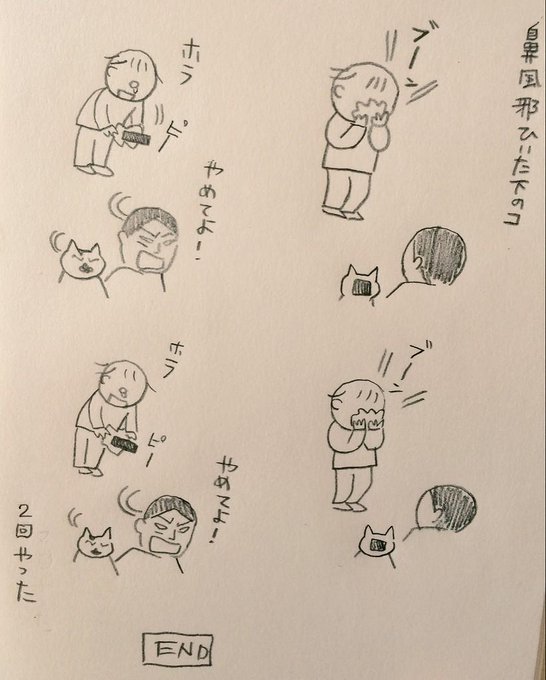 鼻風邪ひいた下のコ
ブーン
ホラ
ピー
やめてよー!
ブーン
ホラ
ピー
やめてよー!
2回やった
END